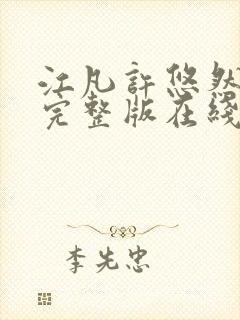 江凡許悠然
完整版在綫
李先忠